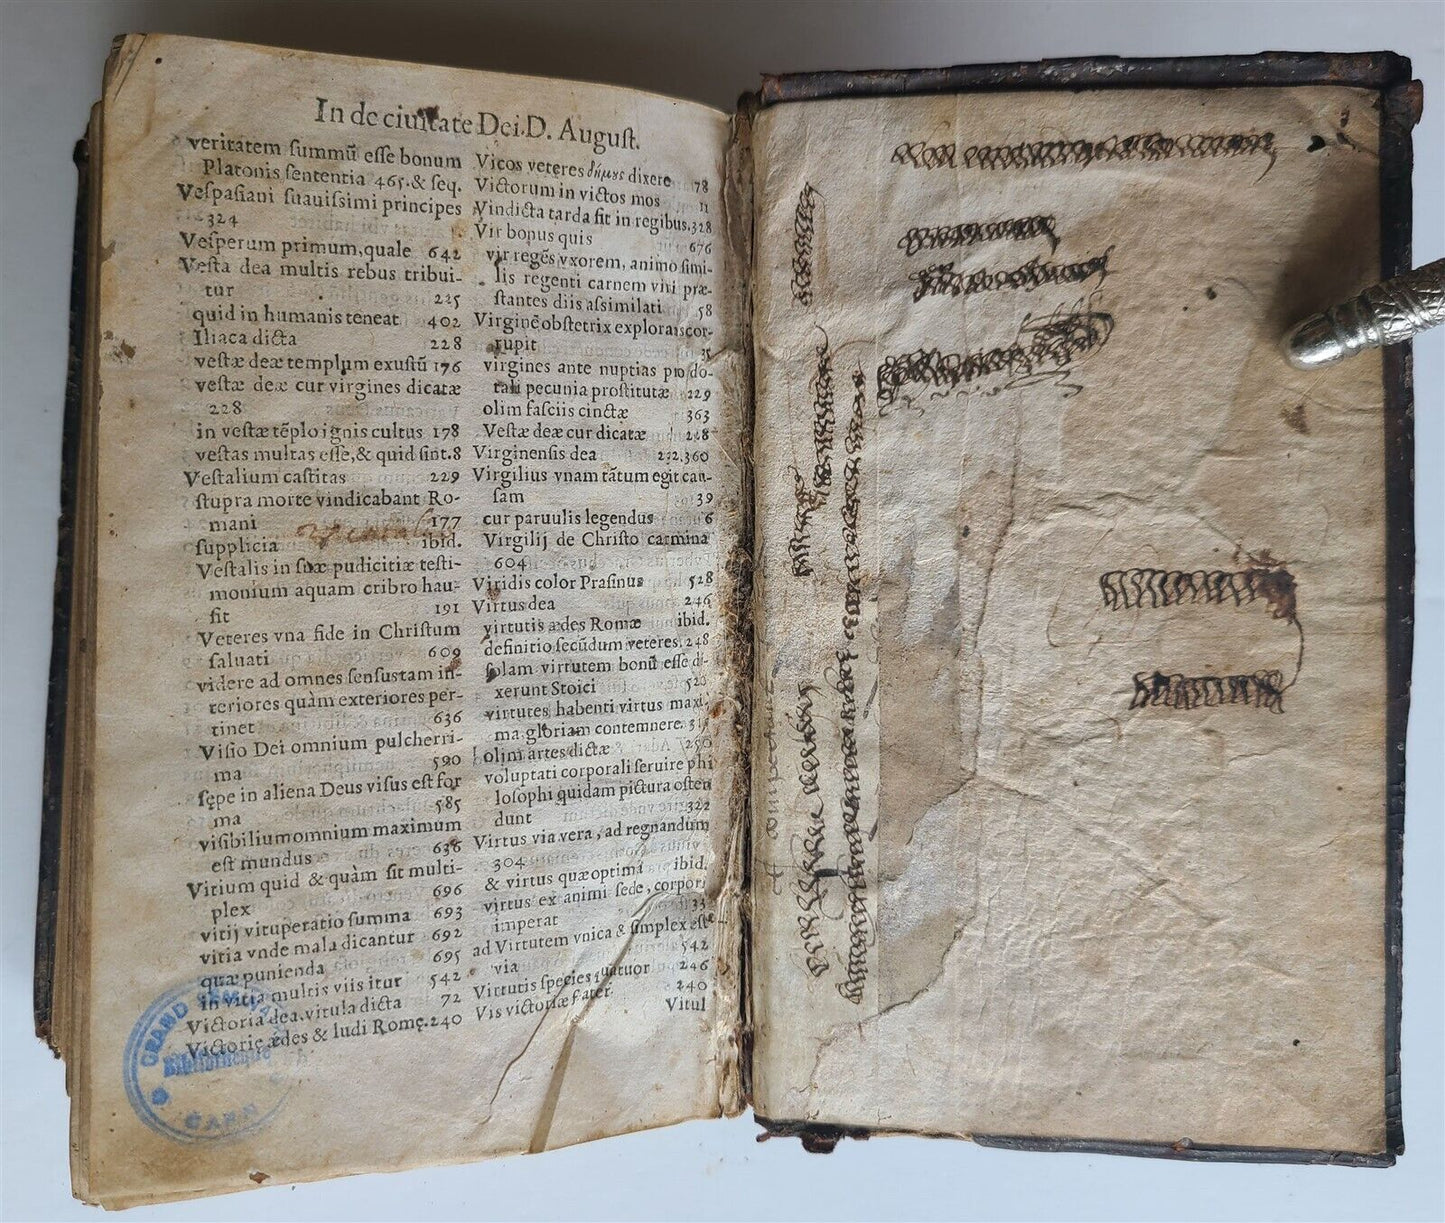 In de ciuitate Dei. D. Auguſt.
veritatem ſummū eſſe bonum
Platonis ſententia 465. & ſeq.
Veſpaſiani ſuauiſſimi principes
324
Veſperum primum, quale 642
Veſta dea multis rebus tribui-
tur 225
quid in humanis teneat 402
Iliaca dicta 228
veſtæ deæ templum exuſtū 176
veſtæ deæ cur virgines dicatæ
228
in veſtæ tēplo ignis cultus 178
veſtas multas eſſe, & quid ſint. 8
Veſtalium caſtitas 229
ſtupra morte vindicabant Ro-
mani 177
ſupplicia ibid.
Veſtalis in ſuæ pudicitiæ teſti-
monium aquam cribro hau-
ſit 191
Veteres vna fide in Chriſtum
ſaluati 609
videre ad omnes ſenſus tam in-
teriores quàm exteriores per-
tinet 636
Viſio Dei omnium pulcherri-
ma 590
ſępe in aliena Deus viſus eſt for
ma 585
viſibilium omnium maximum
eſt mundus 636
Vitium quid & quàm ſit multi-
plex 696
vitij vituperatio ſumma 693
vitia vnde mala dicantur 692
quæ punienda 695
in vitia multris viis itur 542
Victoria dea, vitula dicta 72
Victorię ædes & ludi Romę. 240
Vicos veteres δήμους dixere 78
Victorum in victos mos 11
Vindicta tarda ſit in regibus. 328
Vir bonus quis 676
vir regēs vxorem, animo ſimi-
lis regenti carnem viri præ-
ſtantes diis aſsimilati 58
Virginē obſtetrix explorās cor-
rupit 35
virgines ante nuptias pro do-
tali pecunia proſtitutæ 229
olim faſciis cinctæ 363
Veſtæ deæ cur dicatæ 228
Virginenſis dea 232.360
Virgilius vnam tātum egit cau-
ſam 39
cur paruulis legendus 6
Virgilij de Chriſto carmina
604
Viridis color Praſinus 528
Virtus dea 246
virtutis ædes Romæ ibid.
definitio ſecūdum veteres. 248
ſolam virtutem bonū eſſe di-
xerunt Stoici 520
virtutes habenti virtus maxi.
ma gloriam contemnere. 315
olim artes dictæ 250
voluptati corporali ſeruire phi
loſophi quidam pictura oſten
dunt 322
Virtus via vera, ad regnandum
304
& virtus quæ optima ibid.
virtus ex animi ſede, corpori
imperat 33
ad Virtutem vnica & ſimplex eſt
via 542
Virtutis ſpecies quatuor 246
Vis victoriæ fateri 240
Vitul
GRAND SEMINAIRE
Bibliothèque